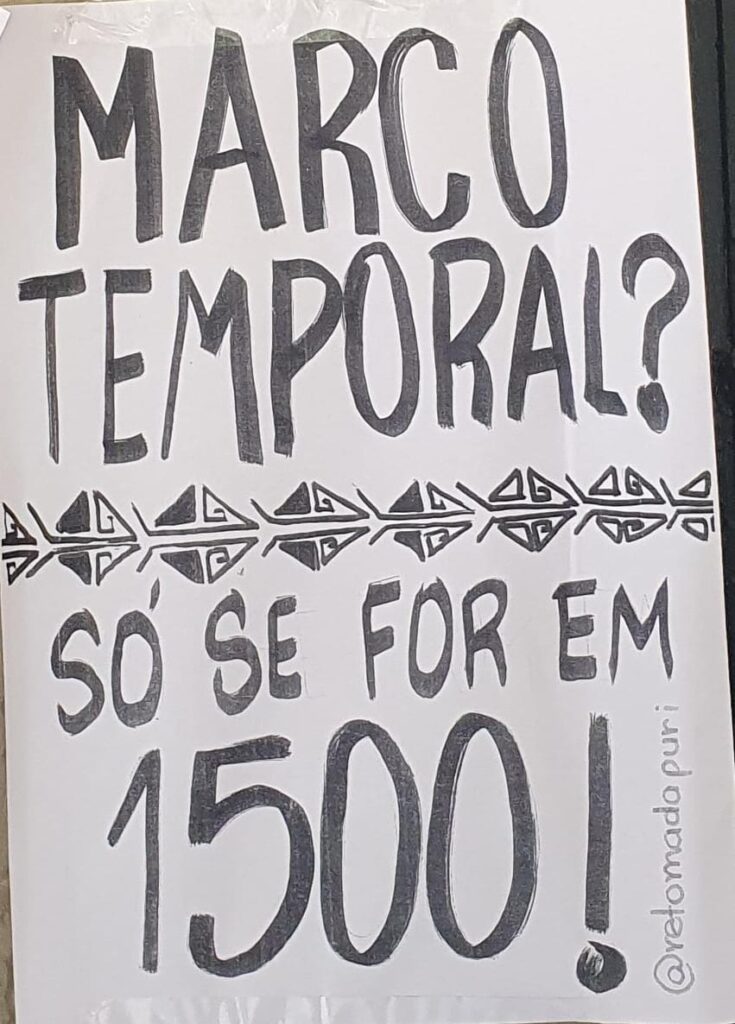 MARCO
TEMPORAL?
SÓ SE FOR EM
1500!
@retomadapuri